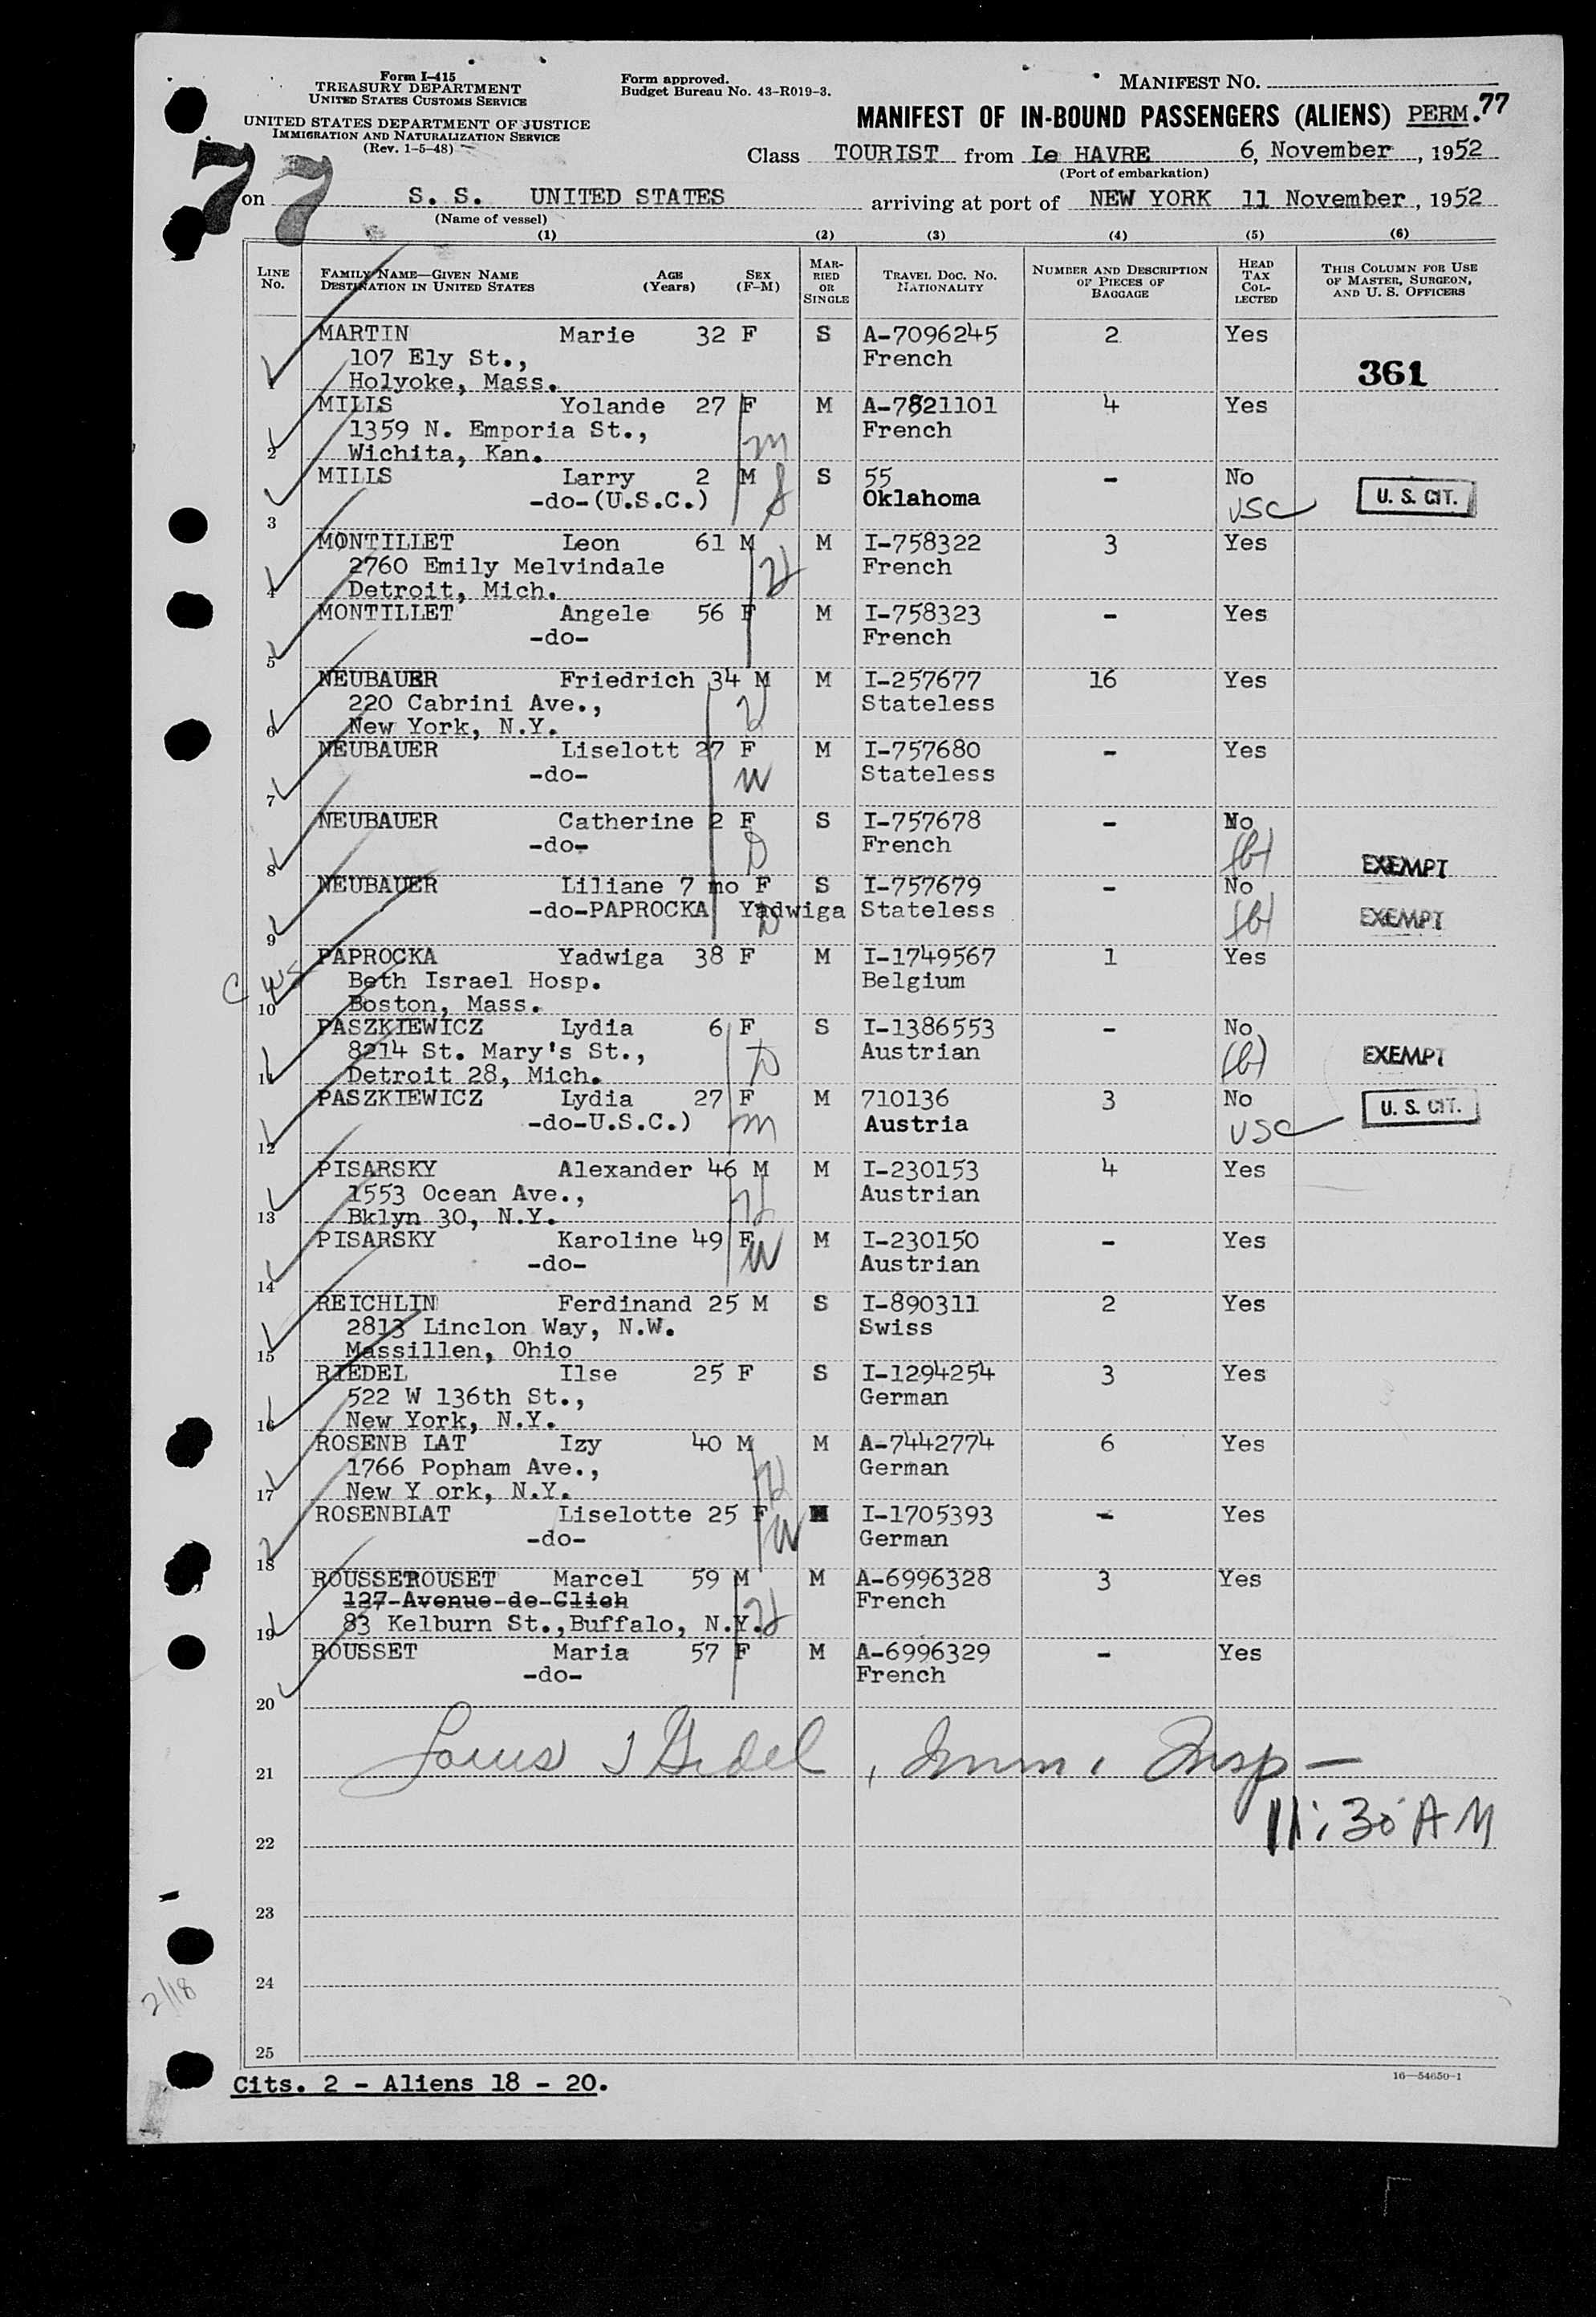 Form I-415
TREASURY DEPARTMENT
UNITED STATES CUSTOMS SERVICE
UNITED STATES DEPARTMENT OF JUSTICE
IMMIGRATION AND NATURALIZATION SERVICE
(Rev. 1-5-48)
Form approved.
Budget Bureau No. 43-R019-3.
MANIFEST NO.
MANIFEST OF IN-BOUND PASSENGERS (ALIENS) PERM. 77
Class TOURIST from Le HAVRE 6, November, 1952
(Port of embarkation)
77
on S. S. UNITED STATES arriving at port of NEW YORK 11 November, 1952
(Name of vessel)
(1) (2) (3) (4) (5) (6)
LINE No. FAMILY NAME—GIVEN NAME DESTINATION IN UNITED STATES AGE (Years) SEX (F-M) MARRIED OR SINGLE TRAVEL DOC. NO. NATIONALITY NUMBER AND DESCRIPTION OF PIECES OF BAGGAGE HEAD TAX COLLECTED THIS COLUMN FOR USE OF MASTER, SURGEON, AND U. S. OFFICERS
MARTIN Marie 32 F S A-7096245 2 Yes
107 Ely St., French 361
1 Holyoke, Mass.
MILLS Yolande 27 F M A-7821101 4 Yes
1359 N. Emporia St., French
2 Wichita, Kan. m
MILLS Larry 2 M S 55 - No
-do-(U.S.C.) Oklahoma USC U. S. CIT.
3
MONTILLET Leon 61 M M I-758322 3 Yes
2760 Emily Melvindale French
4 Detroit, Mich.
MONTILLET Angele 56 F M I-758323 - Yes
-do- French
5
NEUBAUER Friedrich 34 M M I-257677 16 Yes
220 Cabrini Ave., Stateless
6 New York, N.Y.
NEUBAUER Liselott 27 F M I-757680 - Yes
-do- W Stateless
7
NEUBAUER Catherine 2 F S I-757678 - No
-do- D French (b) EXEMPT
8
NEUBAUER Liliane 7 mo F S I-757679 - No
-do-PAPROCKA Yadwiga D Stateless (b) EXEMPT
9
PAPROCKA Yadwiga 38 F M I-1749567 1 Yes
Beth Israel Hosp. Belgium
10 Boston, Mass.
PASZKIEWICZ Lydia 6 F S I-1386553 - No
8214 St. Mary's St., D Austrian (b) EXEMPT
11 Detroit 28, Mich.
PASZKIEWICZ Lydia 27 F M 710136 3 No
-do-U.S.C.) m Austria USC U. S. CIT.
12
PISARSKY Alexander 46 M M I-230153 4 Yes
1553 Ocean Ave., Austrian
13 Bklyn 30, N.Y.
PISARSKY Karoline 49 F M I-230150 - Yes
-do- W Austrian
14
REICHLIN Ferdinand 25 M S I-890311 2 Yes
2813 Linclon Way, N.W. Swiss
15 Massillen, Ohio
RIEDEL Ilse 25 F S I-1294254 3 Yes
522 W 136th St., German
16 New York, N.Y.
ROSENB LAT Izy 40 M M A-7442774 6 Yes
1766 Popham Ave., German
17 New Y ork, N.Y.
ROSENBLAT Liselotte 25 F M I-1705393 - Yes
-do- W German
18
ROUSSETROUSET Marcel 59 M M A-6996328 3 Yes
127-Avenue-de-Clich French
19 83 Kelburn St.,Buffalo, N.Y.
ROUSSET Maria 57 F M A-6996329 - Yes
-do- French
20
21 Louis J , Imm. Insp -
11:30 AM
22
23
24
2/18
25
Cits. 2 - Aliens 18 - 20.
16—54650-1